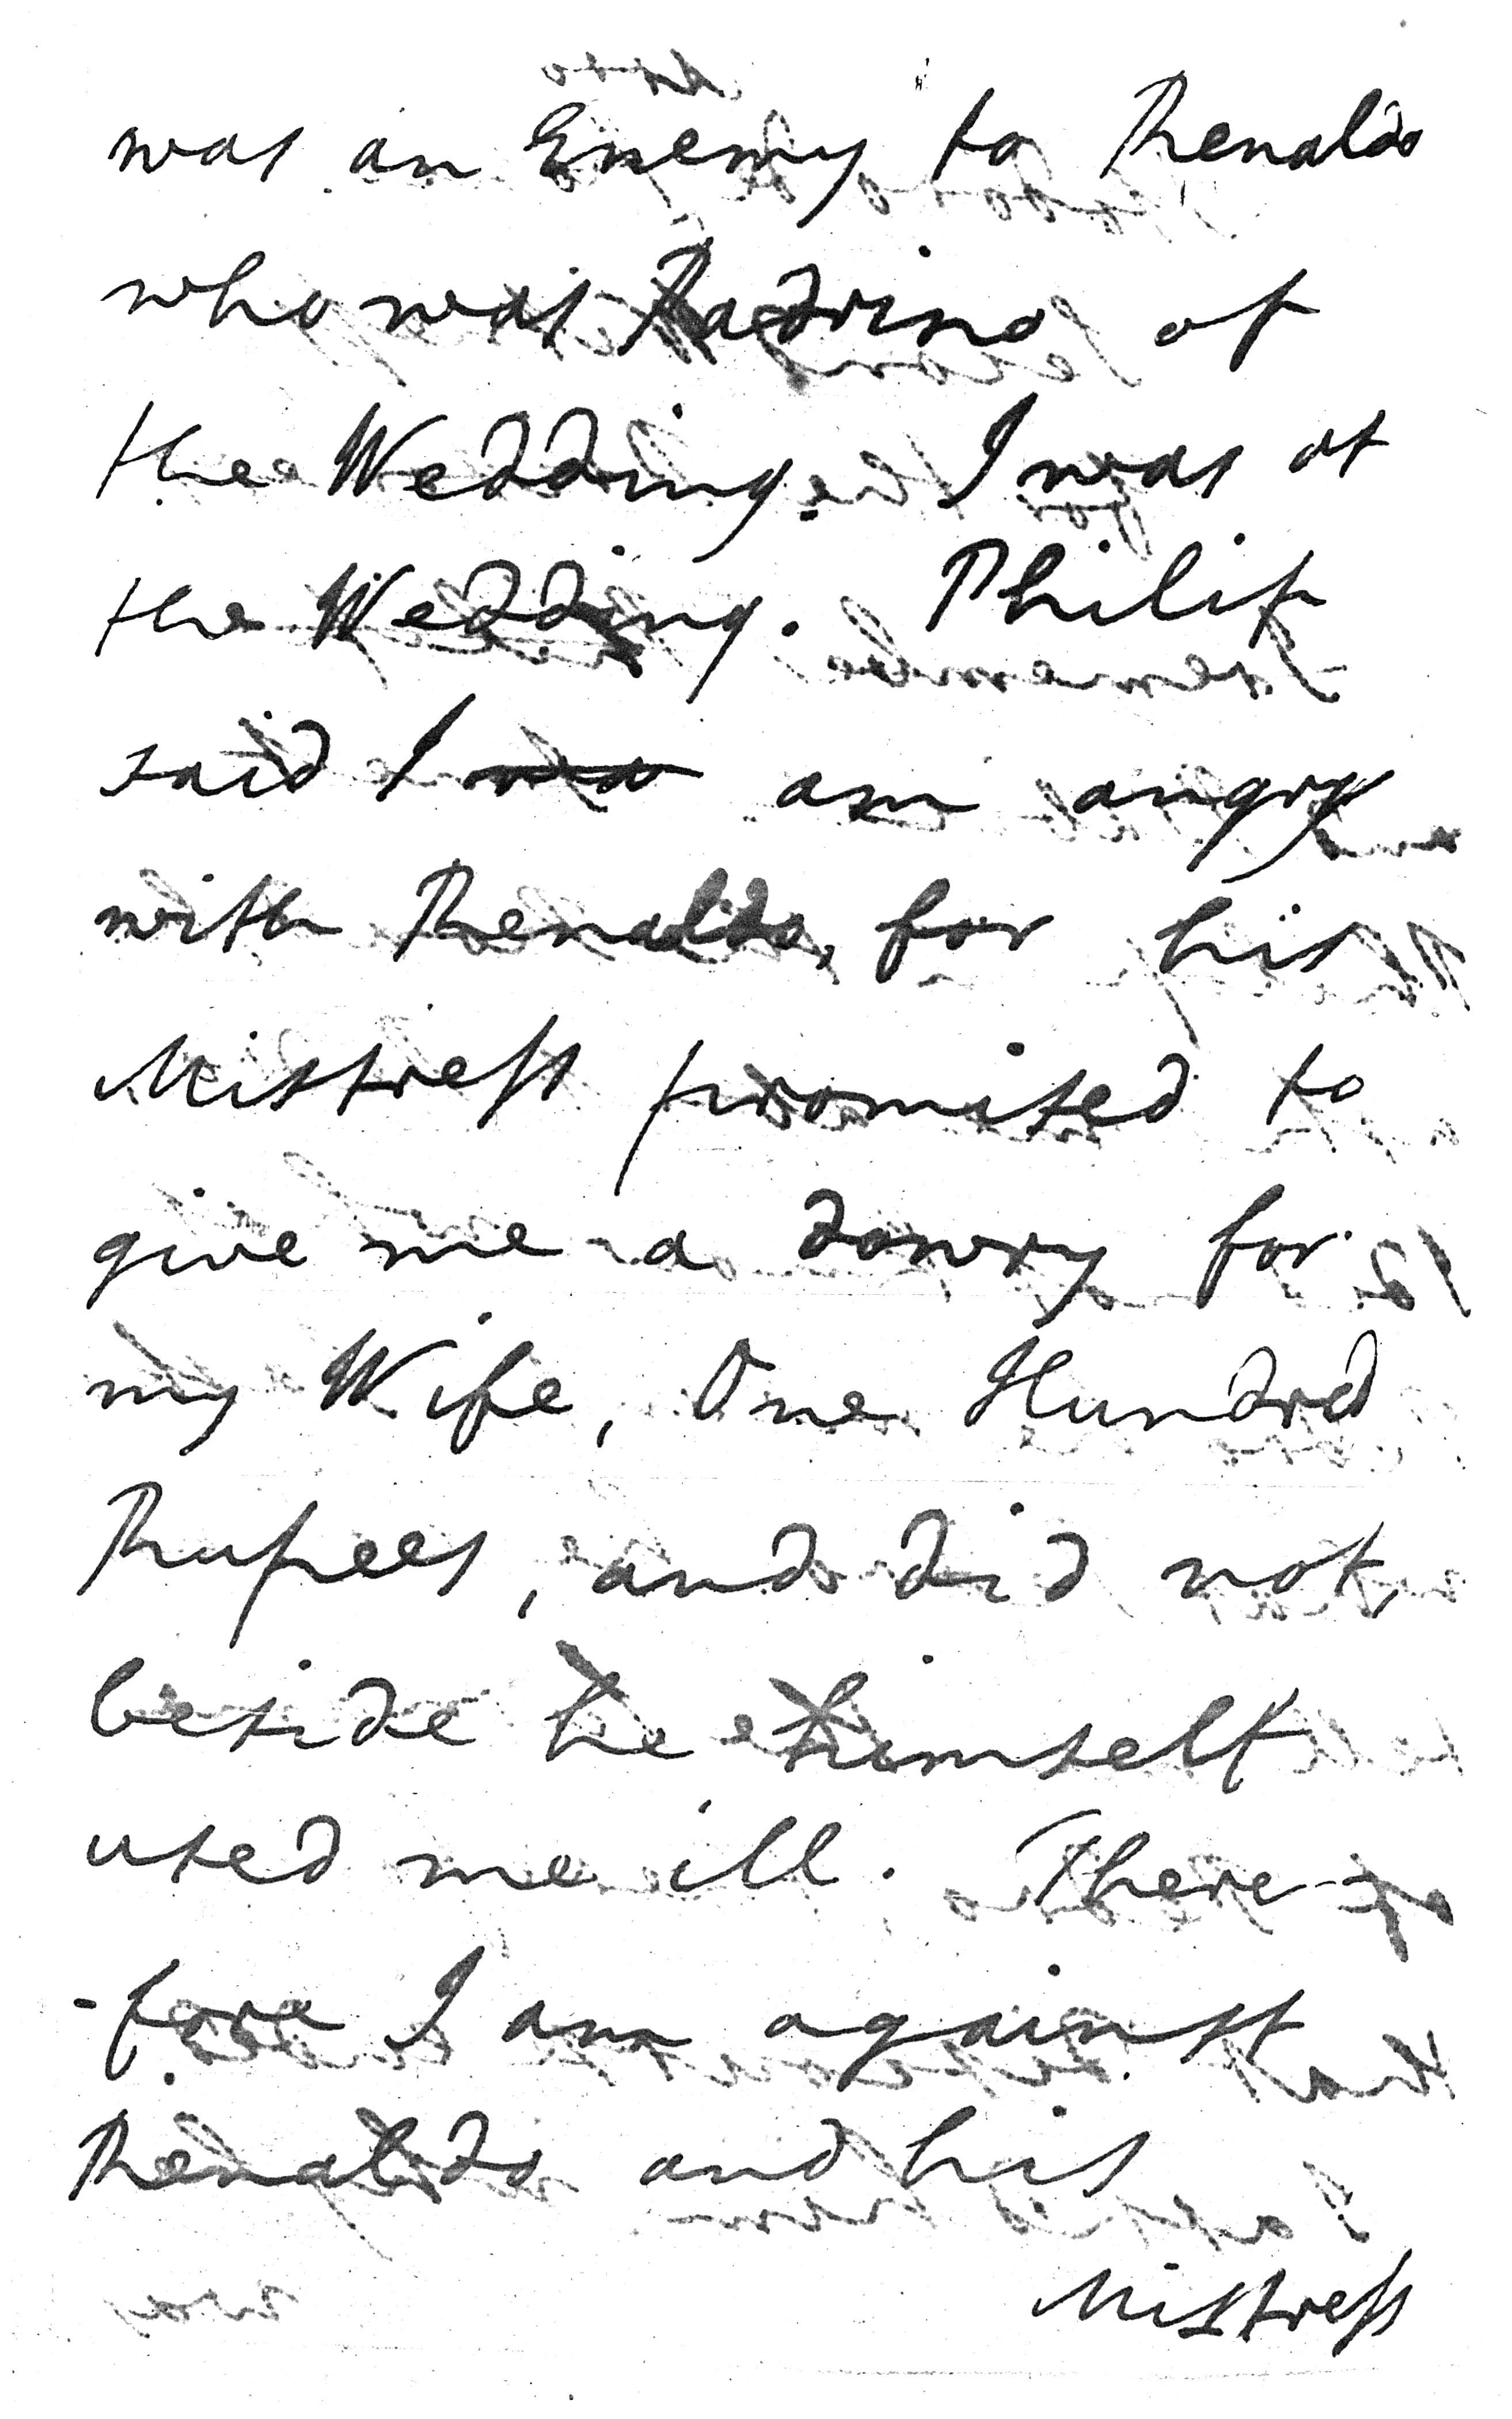 was an Enemy to Renaldo
who was Padrino at
the Wedding. I was at
the Wedding. Philip
said I was am angry
with Renaldo, for his
Mistress promised to
give me a dowry for
my Wife, One Hundred
Rupees, and did not,
beside he himself
used me ill. There-
-fore I am against
Renaldo and his
Mistress